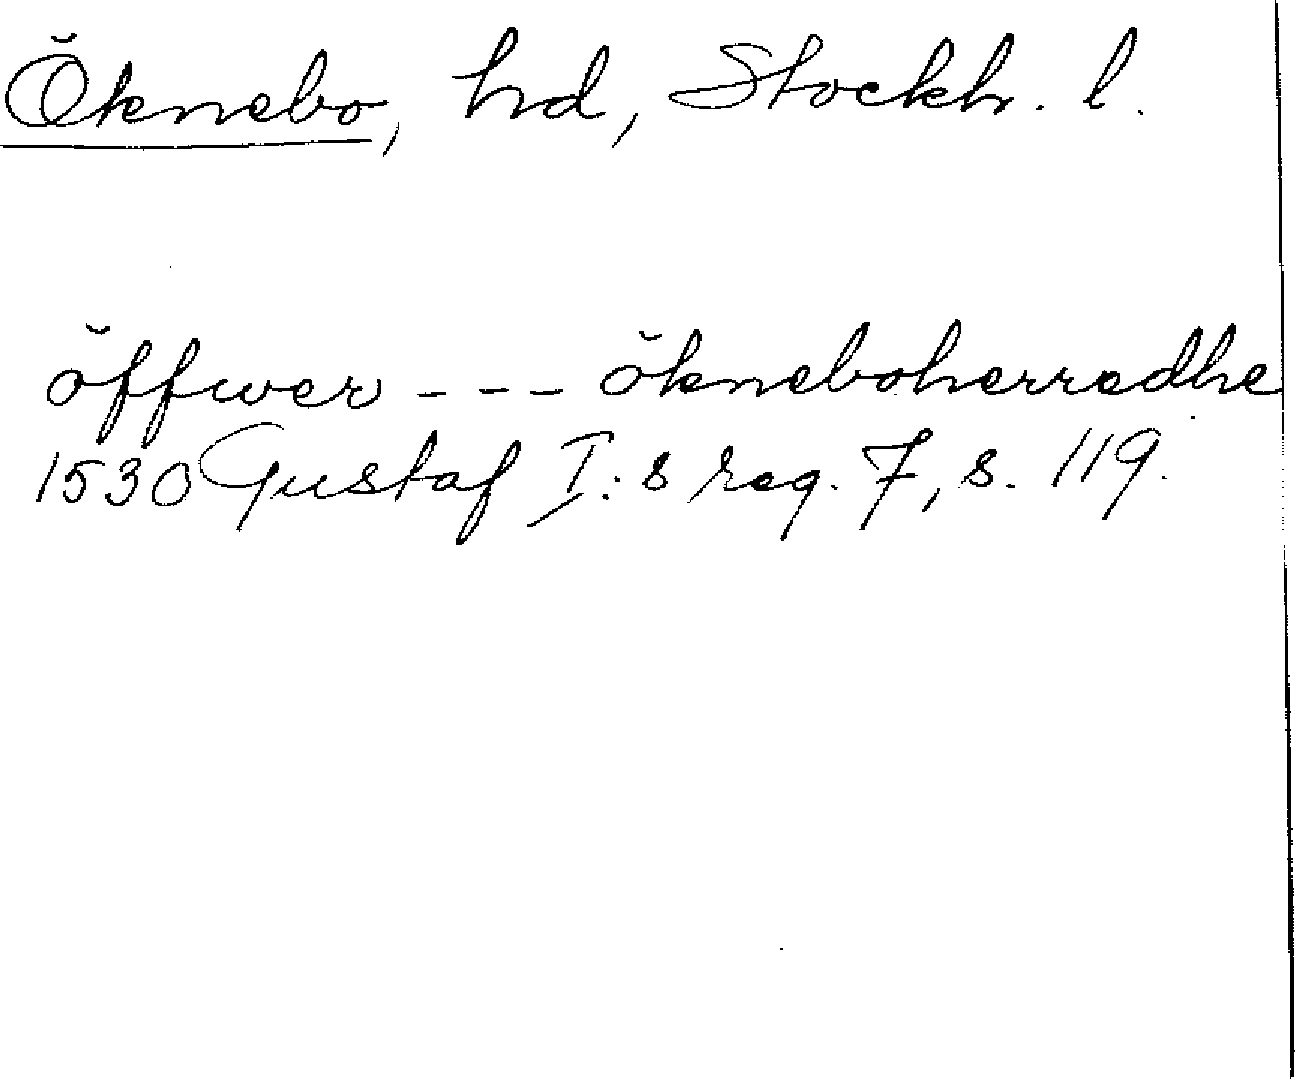 Öknebo, hd, Stockh. l.
öffwer - - - ökneboherredhe
1530 Gustaf I:s reg. 7, s. 119.